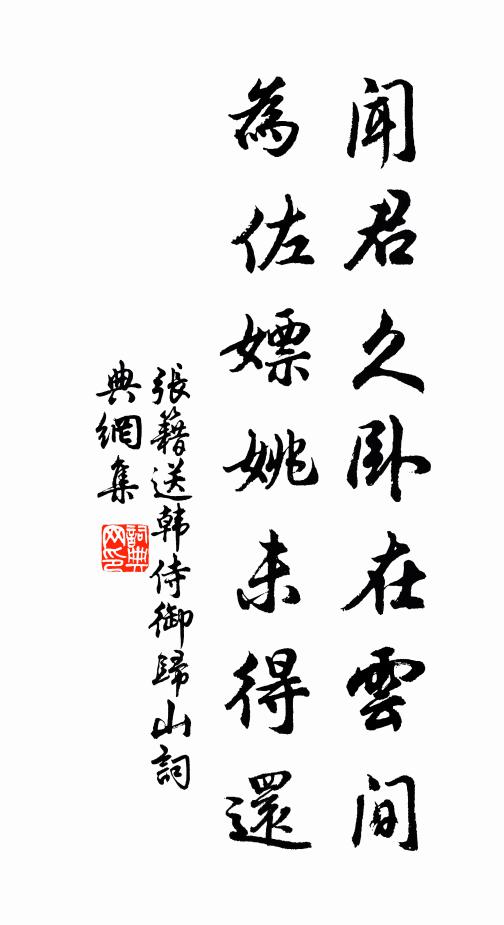 聞君久卧在雲間
為佐嫖姚未得還
張籍送韩侍御歸山詞
典網集
詞典网印